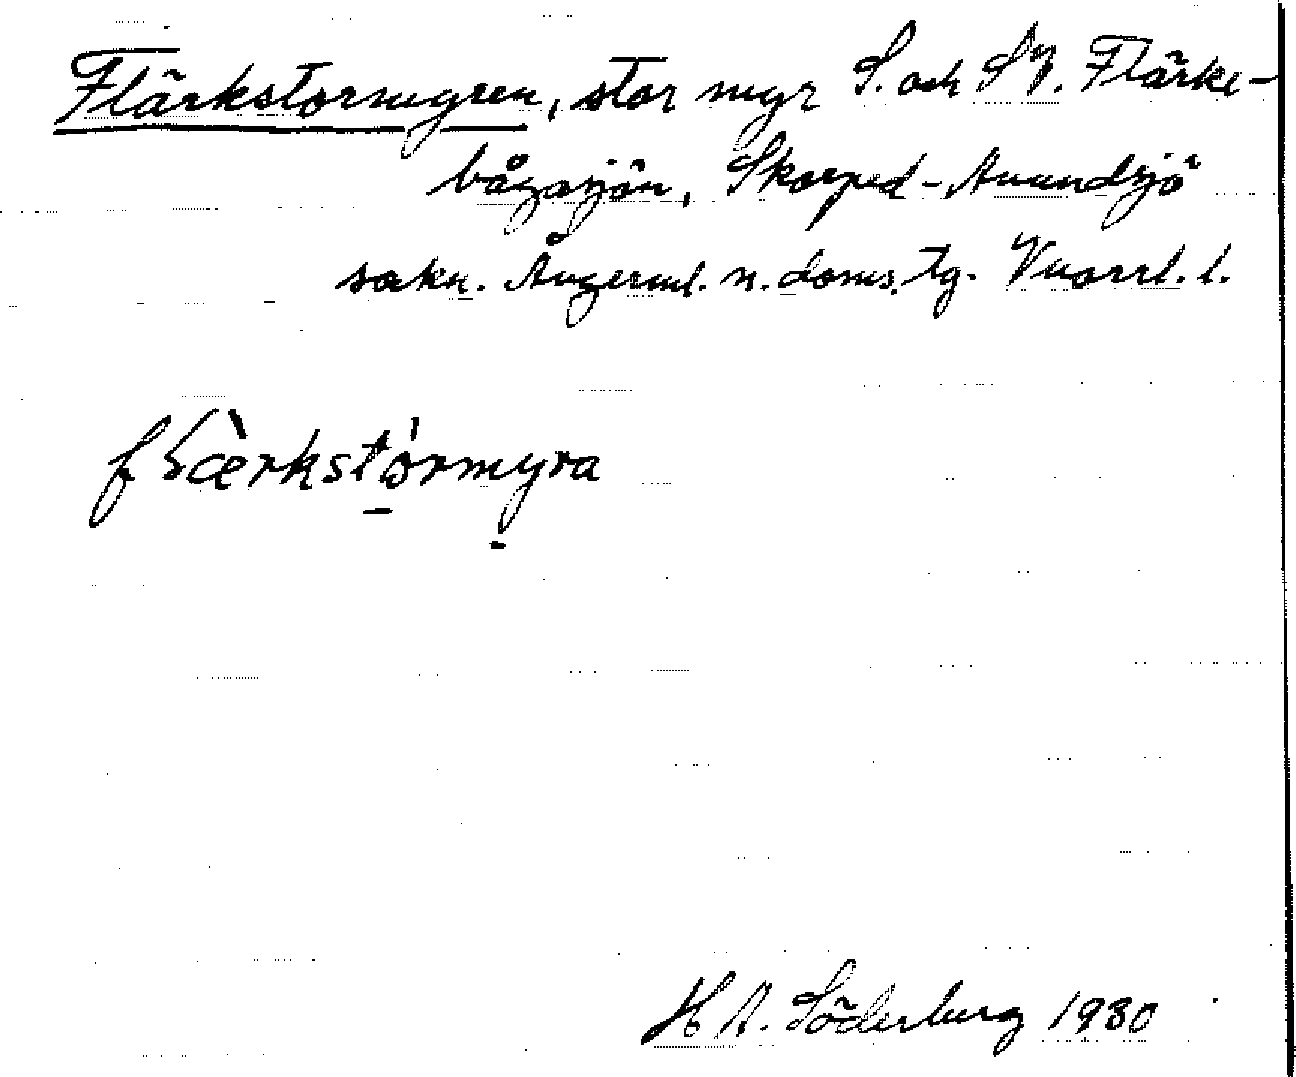 Flärkstormyren, stor myr S. och SV. Flärke-
bågasjön, Skorped-Anundsjö
sokn. Ångerml. n. doms. tg. Vuorrl. l.
fʟæ̀rkstórmyra
H A. Söderberg 1930